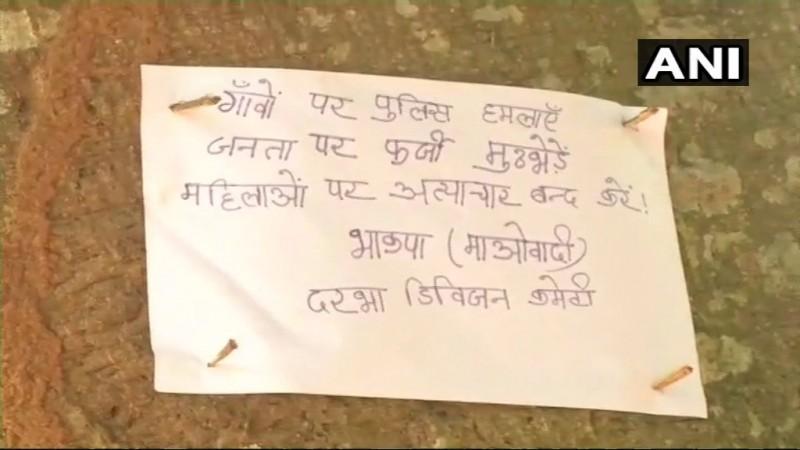 ANI
गाँवों पर पुलिस हमलाएँ
जनता पर फर्जी मुठभेड़ें
महिलाओं पर अत्याचार बन्द करें!
भाकपा (माओवादी)
दरभा डिविजन कमेटी